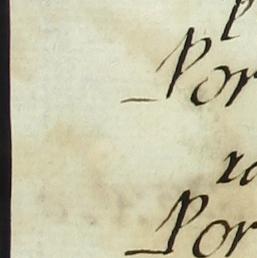 p
Por
ra
Por